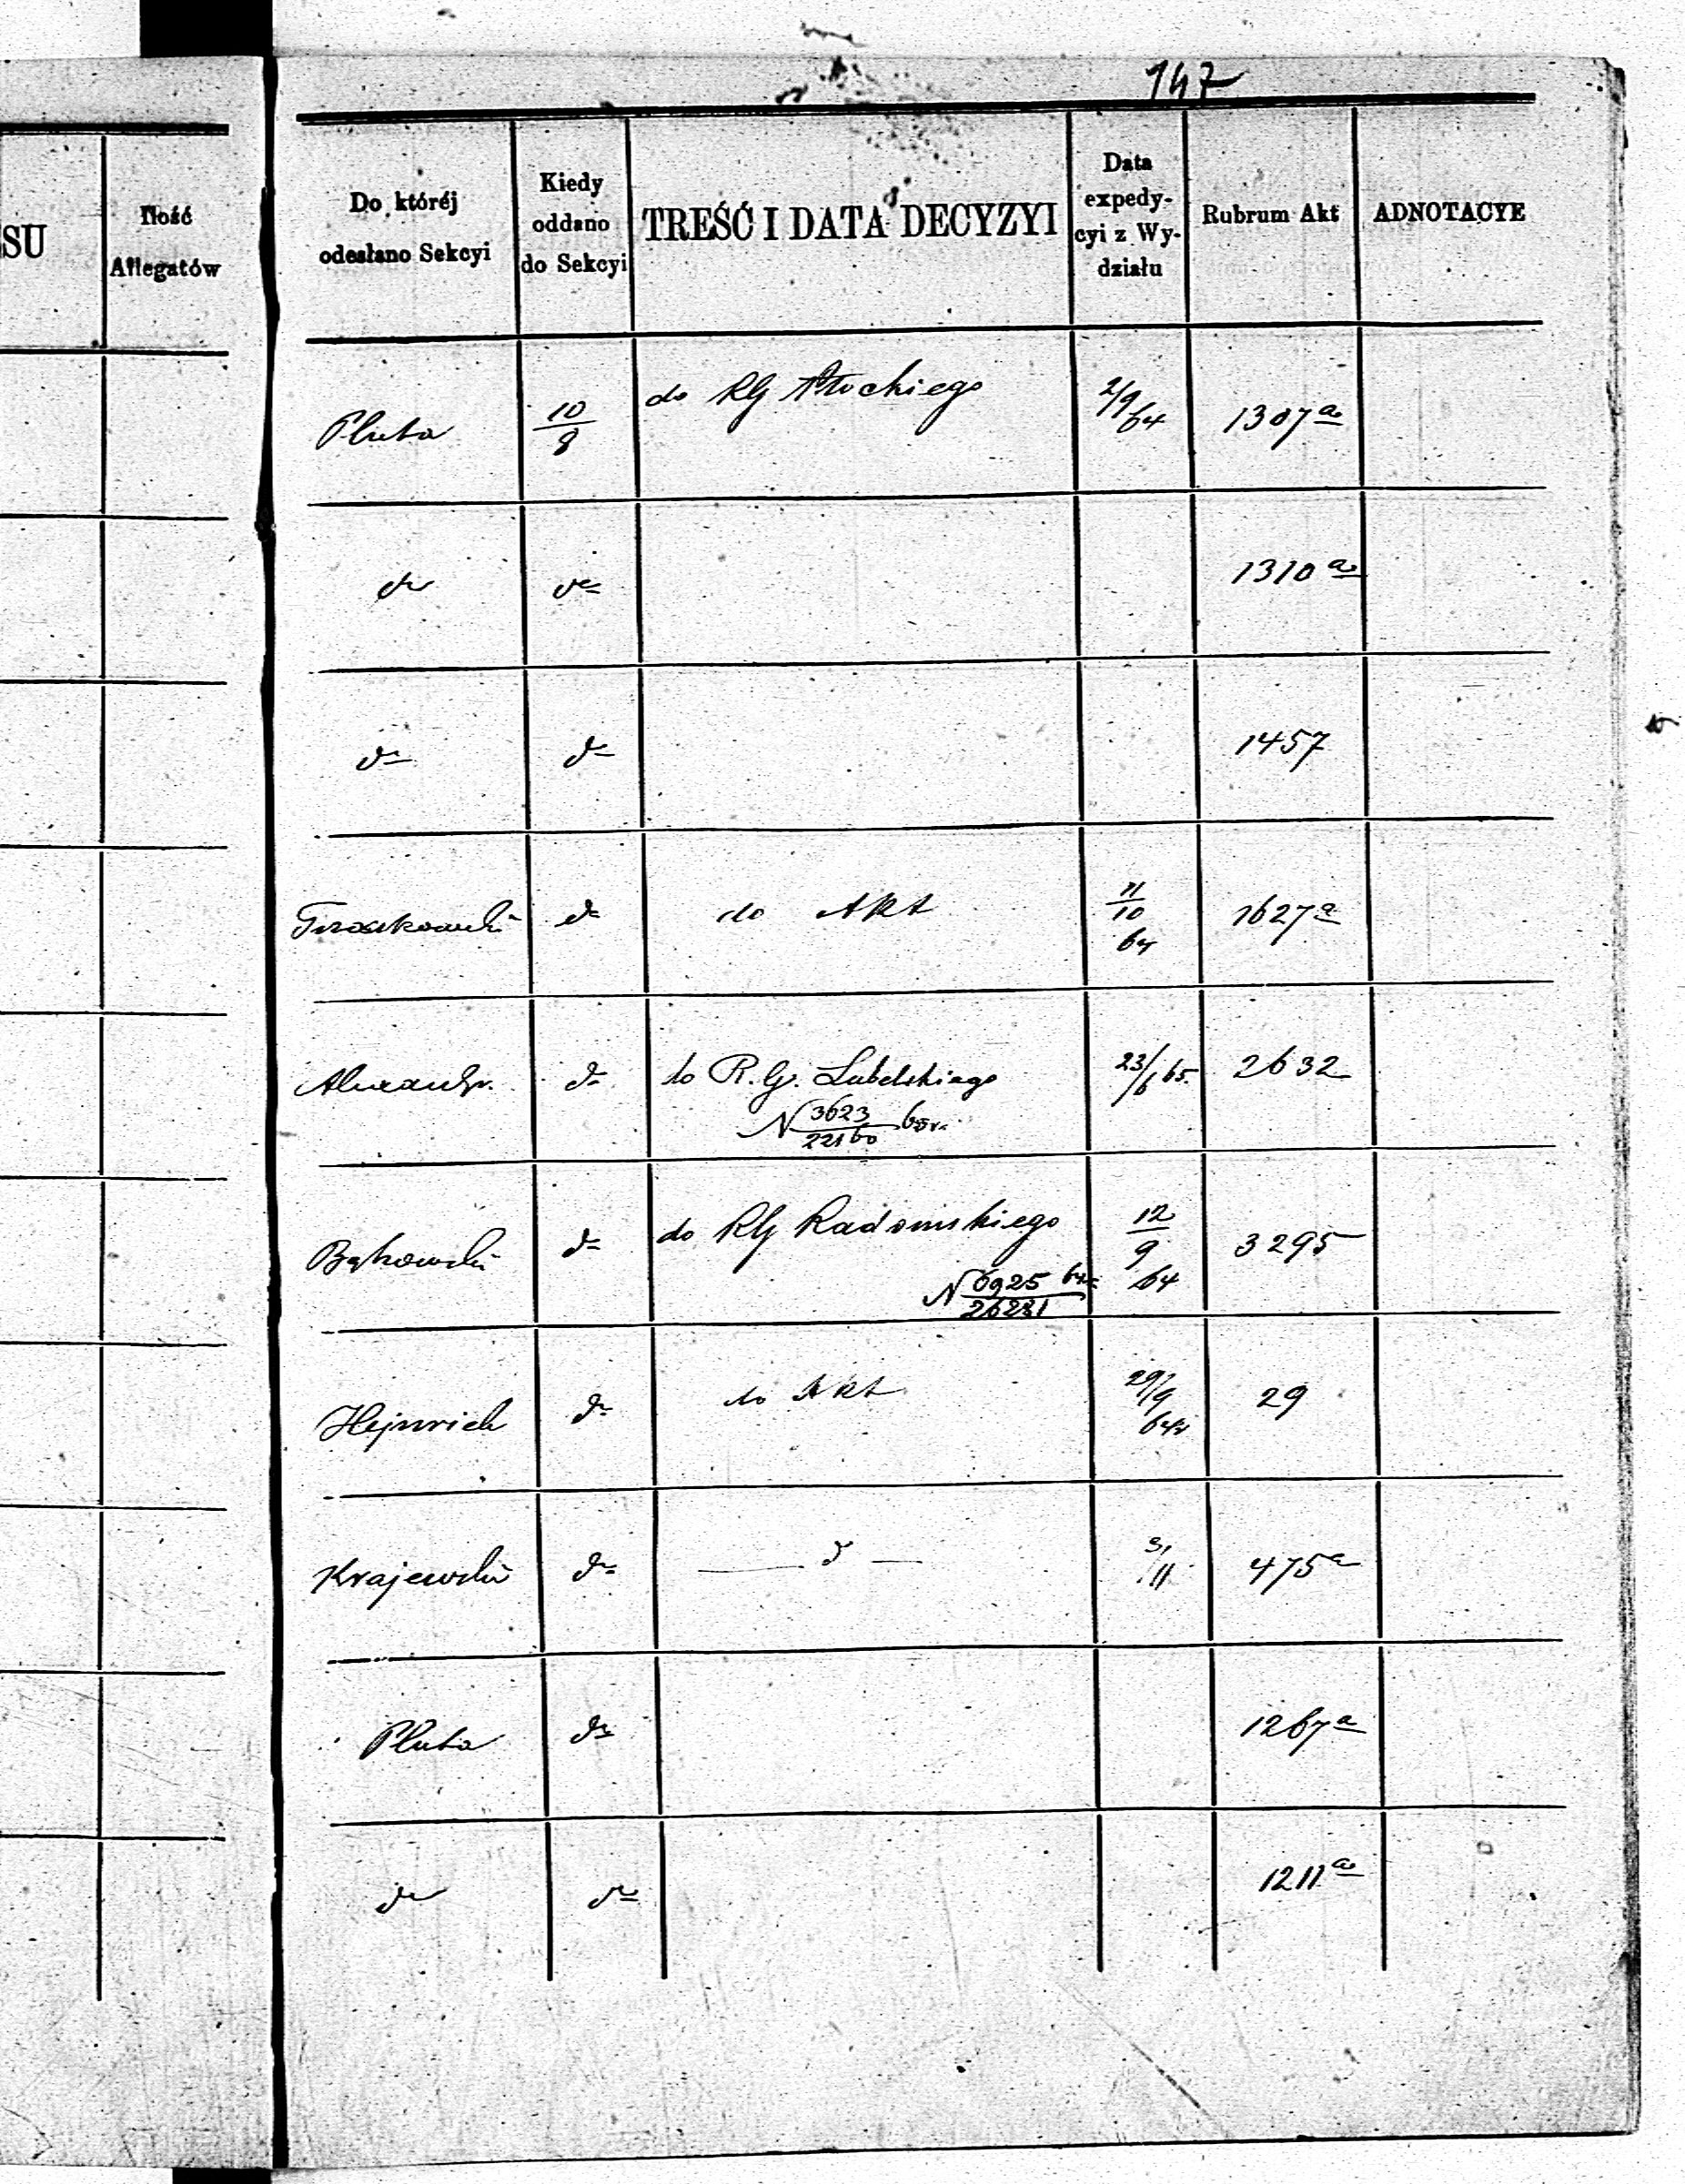 147
SU
Ilość
Allegatów
Do któréj
odesłano Sekcyi
Kiedy
oddano
do Sekcyi
TREŚĆ I DATA DECYZYI
Data
expedy-
cyi z Wy-
działu
Rubrum Akt
ADNOTACYE
Pluta 10/8 do RG Płockiego 2/9 64 1307a
do do 1310a
do do 1457
do do Akt 11/10 64 1627a
Alexandr. do do R. G. Lubelskiego 23/6 65. 2632
N 3623/22160 65r.
Bąkowski do do RG Radomskiego 12/9 64 3295
N 6925/26281 64r
Hejnrich do do Akt 29/9 64r 29
Krajewski do — d — 3/11 475a
Pluta do 1267a
do do 1211a